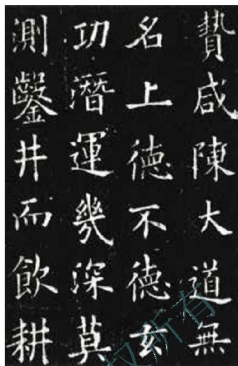 贄咸陳大道無
名上德不德玄
功潛運幾深莫
測鑿井而飲耕
權所有